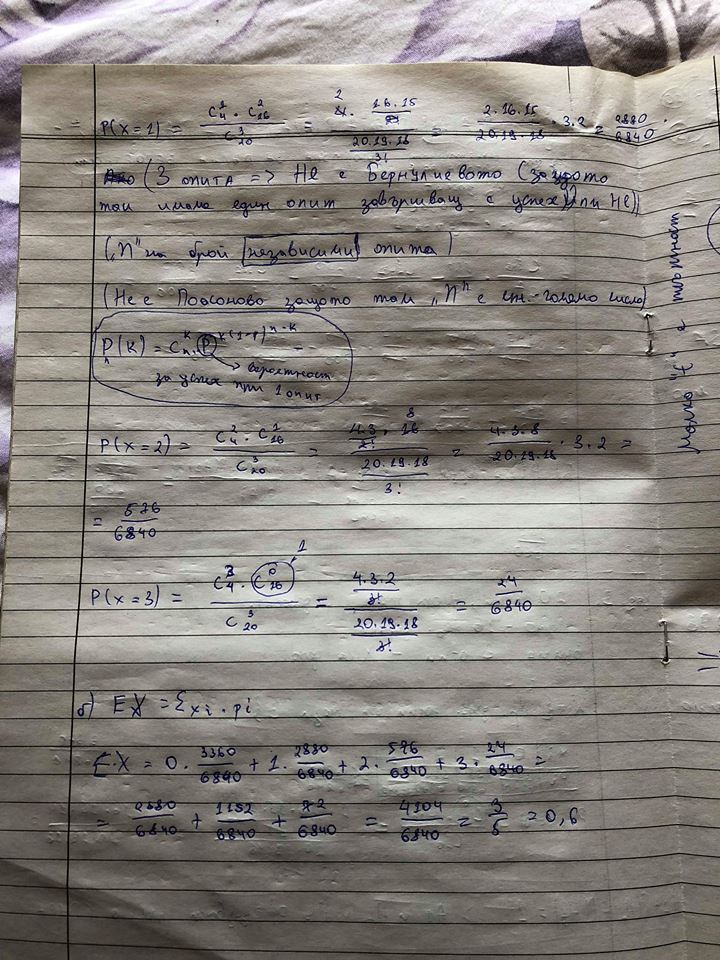 P(X=1) = \frac{C_4^1 \cdot C_{16}^2}{C_{20}^3} = \frac{4 \cdot \frac{16.15}{2!}}{\frac{20.19.18}{3!}} = \frac{2.16.15}{20.19.18} \cdot 3.2 = \frac{2880}{6840}
(3 опита => Не е Бернулиевото (защото
там имаме един опит завършващ с успех или Не))
("n" на брой независими опита)
(Не е Поасоново защото там "n" е мн. голямо число)
P_n(k) = C_n^k . p^k (1-p)^{n-k}
вероятност
за успех при 1 опит
P(x=2) = \frac{C_4^2 \cdot C_{16}^1}{C_{20}^3} = \frac{\frac{4.3}{2!} \cdot 16}{\frac{20.19.18}{3!}} = \frac{4.3.8}{20.19.18} \cdot 3.2 =
= \frac{576}{6840}
1
P(x=3) = \frac{C_4^3 \cdot C_{16}^0}{C_{20}^3} = \frac{\frac{4.3.2}{3!}}{\frac{20.19.18}{3!}} = \frac{24}{6840}
б) EX = Σ x_i . p_i
E.X = 0. \frac{3360}{6840} + 1. \frac{2880}{6840} + 2. \frac{576}{6840} + 3. \frac{24}{6840} =
= \frac{2880}{6840} + \frac{1152}{6840} + \frac{72}{6840} = \frac{4104}{6840} = \frac{3}{5} = 0,6
Малко "t" е